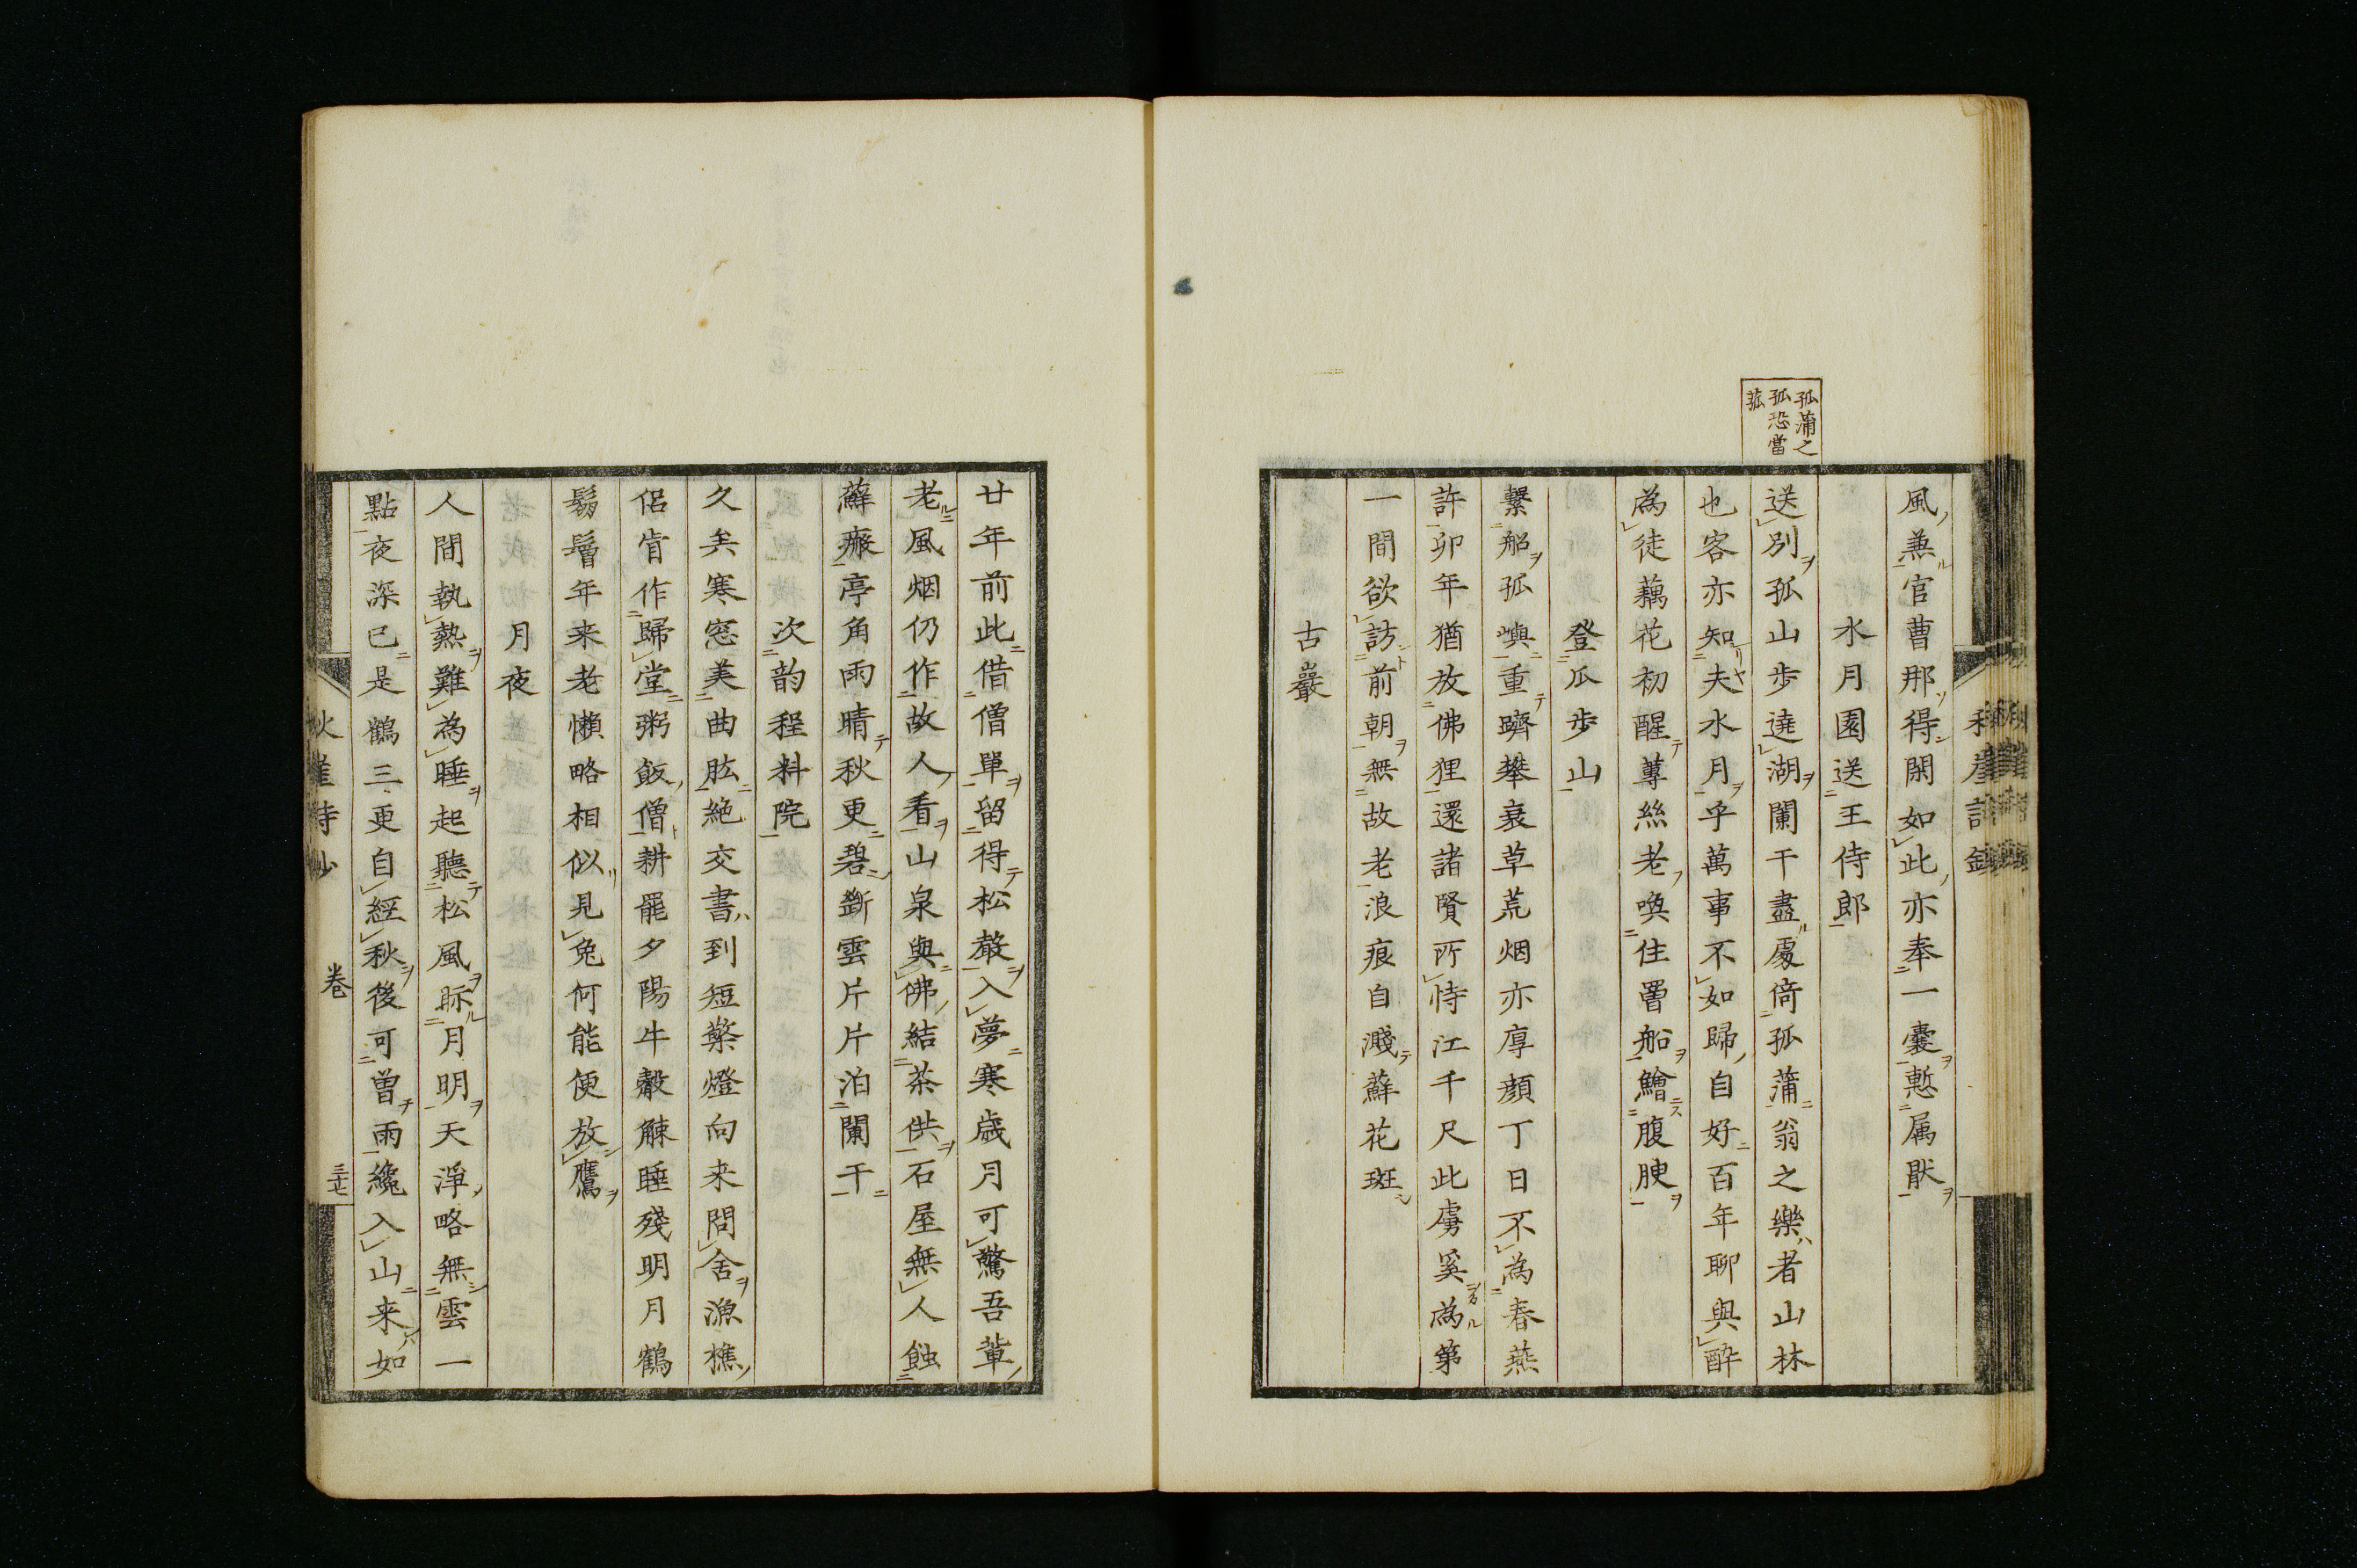 孤蒲之
孤恐當
菰
風兼官曹那得閑如此亦奉一囊慙属厭
水月園送王侍郎
送別孤山步遶湖闌干盡處倚孤蒲翁之樂者山林
也客亦知夫水月乎萬事不如歸自好百年聊與醉
為徒藕花初醒蓴絲老喚住罾船鱠腹腴
登瓜步山
繫船孤嶼重躋攀衰草荒烟亦厚顔丁日不為春燕
許卯年猶放佛狸還諸賢所恃江千尺此虜奚為第
一間欲訪前朝無故老浪痕自濺蘚花斑
古巖
廿年前此借僧單留得松聲入夢寒歳月可驚吾軰
老風烟仍作故人看山泉與佛結茶供石屋無人蝕
蘚瘢亭角雨晴秋更碧斷雲片片泊闌干
次韵程料院
久矣寒窓美曲肱絶交書到短檠燈向来問舍漁樵
侶肯作歸堂粥飯僧耕罷夕陽牛觳觫睡殘明月鶴
鬅鬙年来老懶略相似見兔何能便放鷹
月夜
人間執熱難為睡起聽松風眎月明天淨略無雲一
點夜深已是鶴三更自經秋後可曽雨纔入山来如
秋崖詩鈔
卷
三十七